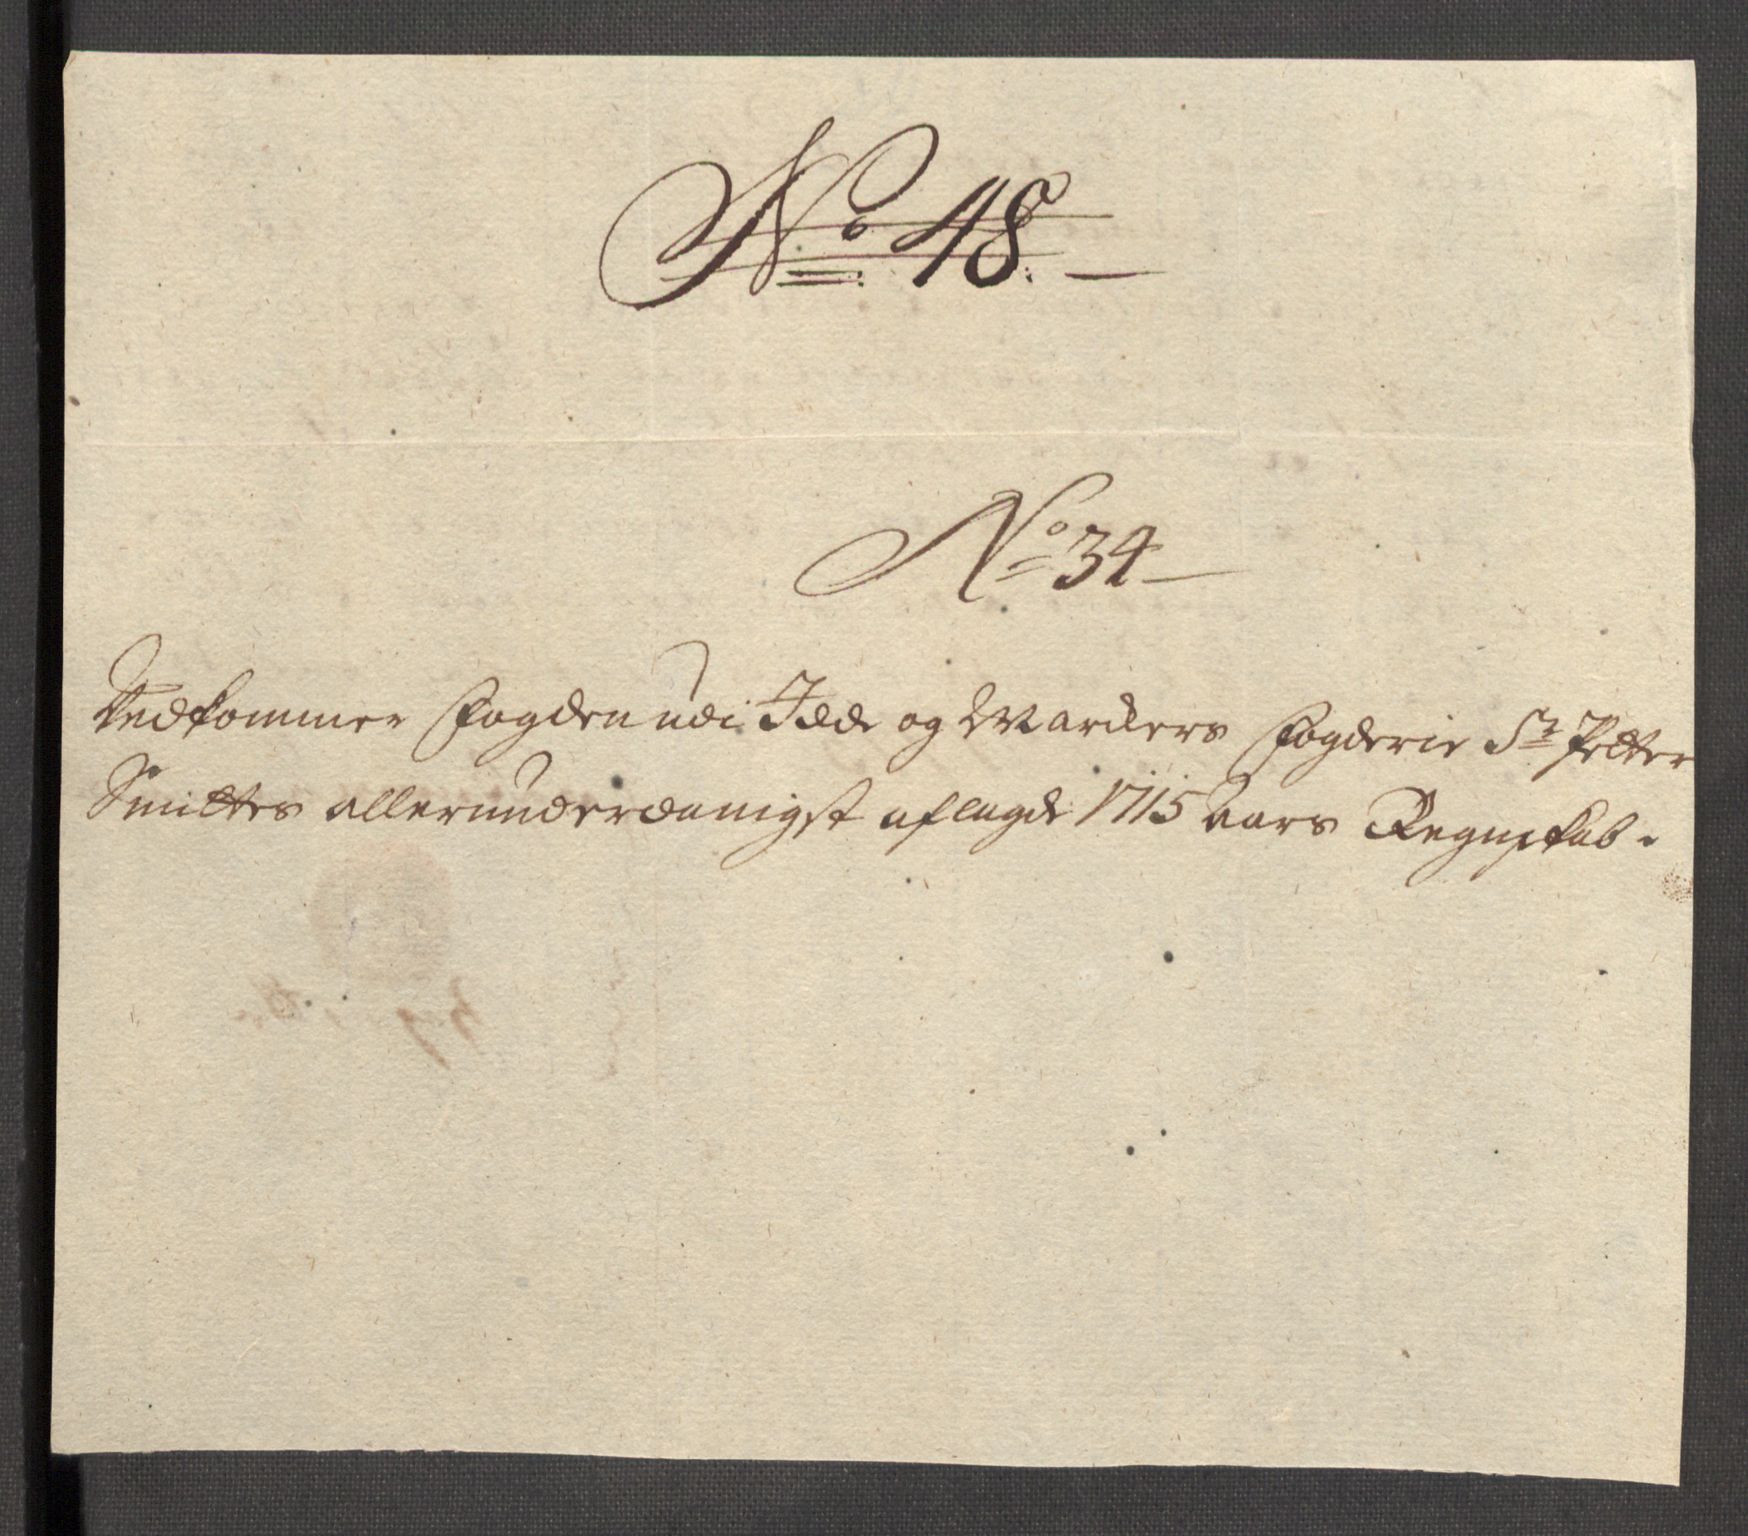 No 48
No 34
Vedkommer Fogden udi Idde og Markers Fogderie Sr Petter
Smittes allerunderdanigst aflagde 1715 Aars Regnskab.